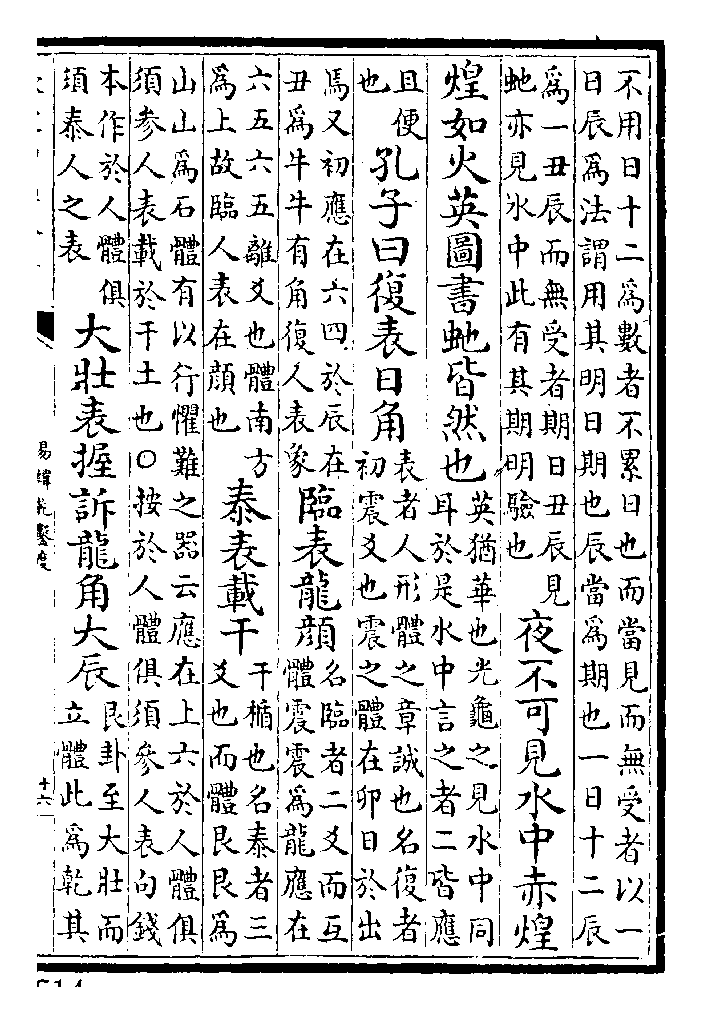 不用日十二爲數者不累日也而當見而無受者以一
日辰爲法謂用其明日期也辰當爲期也一日十二辰
爲一丑辰而無受者期日丑辰見
虵亦見氷中此有其期明驗也
夜不可見水中赤煌
煌如火英圖書虵皆然也
英猶華也光龜之見水中同
耳於是水中言之者二皆應
且便
也
孔子曰復表日角
表者人形體之章誠也名復者
初震爻也震之體在卯日於出
焉又初應在六四於辰在
丑爲牛牛有角復人表象
臨表龍顔
名臨者二爻而互
體震震爲龍應在
六五六五離爻也體南方
爲上故臨人表在顔也
泰表載干
干楯也名泰者三
爻也而體艮艮爲
山山爲石體有以行懼難之器云應在上六於人體俱
須參人表載於干土也○按於人體俱須參人表向錢
本作於人體俱
須泰人之表
大壯表握訴龍角大辰
艮卦至大壯而
立體此爲乾其
易緯乾鑿度
十六